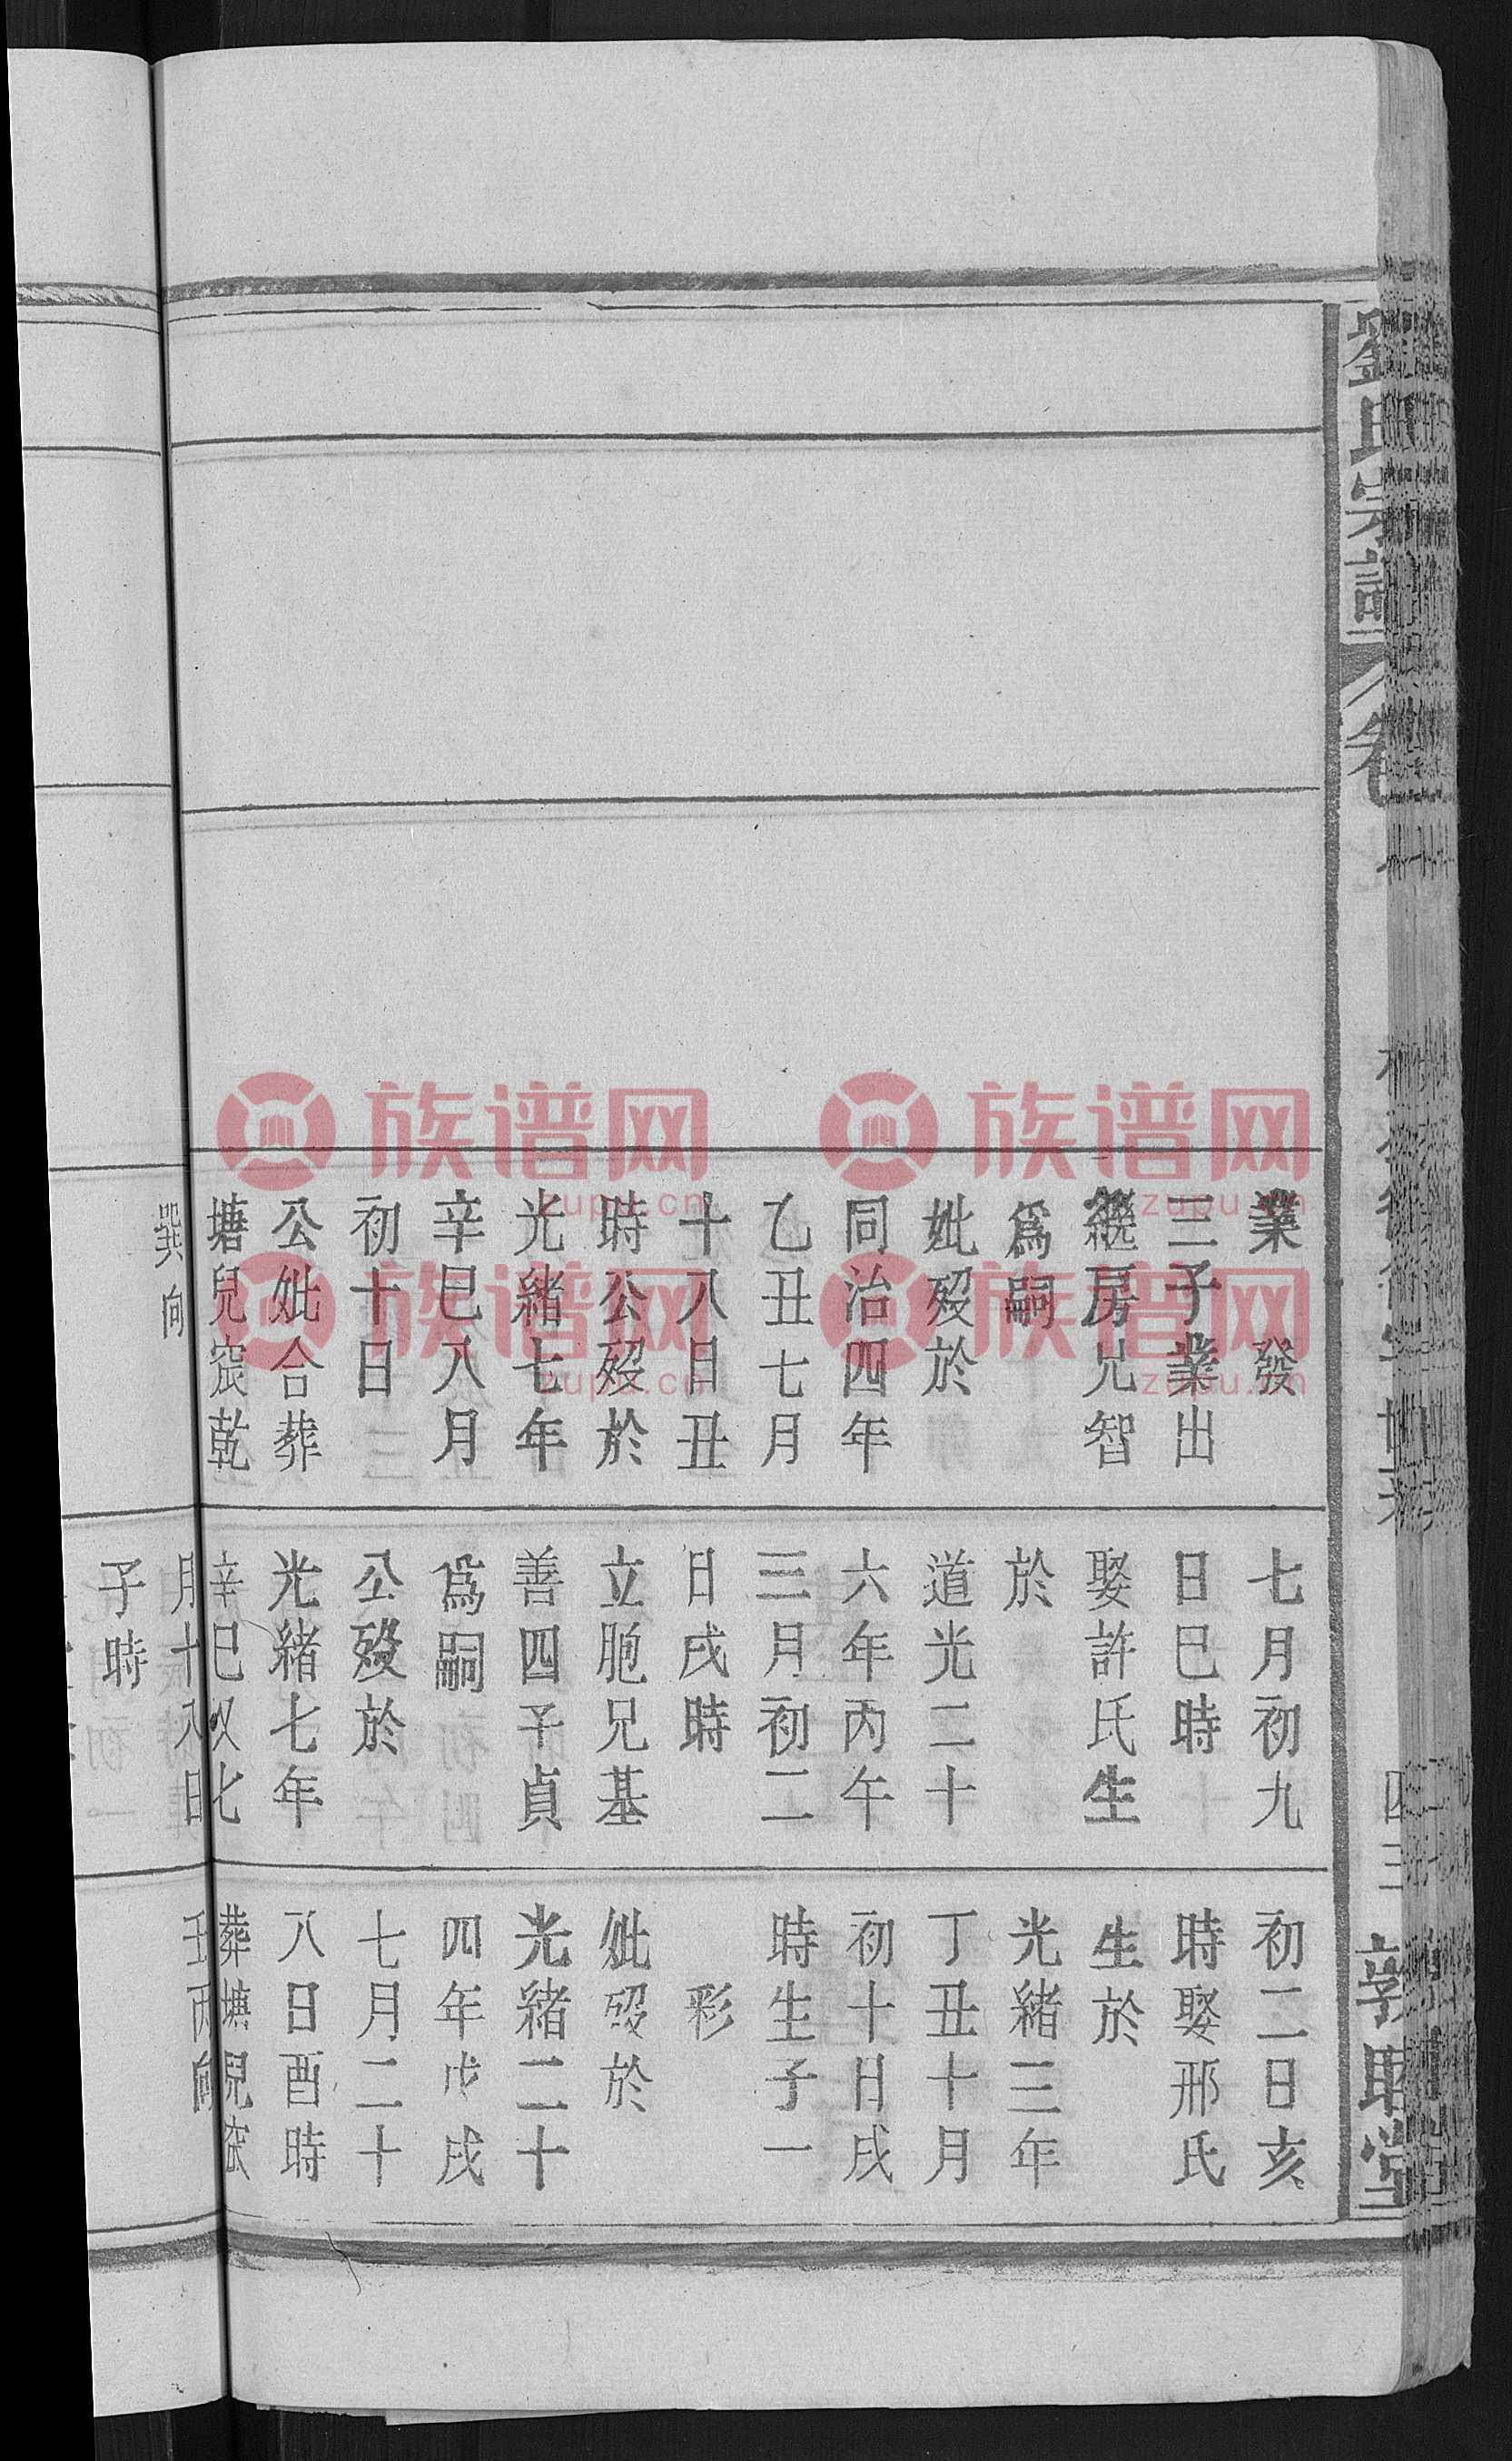 劉氏宗譜
卷
四三
敦睦堂
業發
三子業出
繼房兄智
爲嗣
妣歿於
同治四年
乙丑七月
十八日丑
時公歿於
光緒七年
辛巳八月
初十日
公妣合葬
塘兒窊乾
巽向
七月初九
日巳時
娶許氏生
於
道光二十
六年丙午
三月初二
日戌時
立胞兄基
善四子貞
爲嗣
公歿於
光緒七年
辛巳
月十八日
子時
初二日亥
時娶邢氏
生於
光緒三年
丁丑十月
初十日戌
時生子一
彩
妣歿於
光緒二十
四年戊戌
七月二十
八日酉時
葬塘兒窊
壬丙向
族谱网
zupu.cn
族谱网
zupu.cn
族谱网
zupu.cn
族谱网
zupu.cn